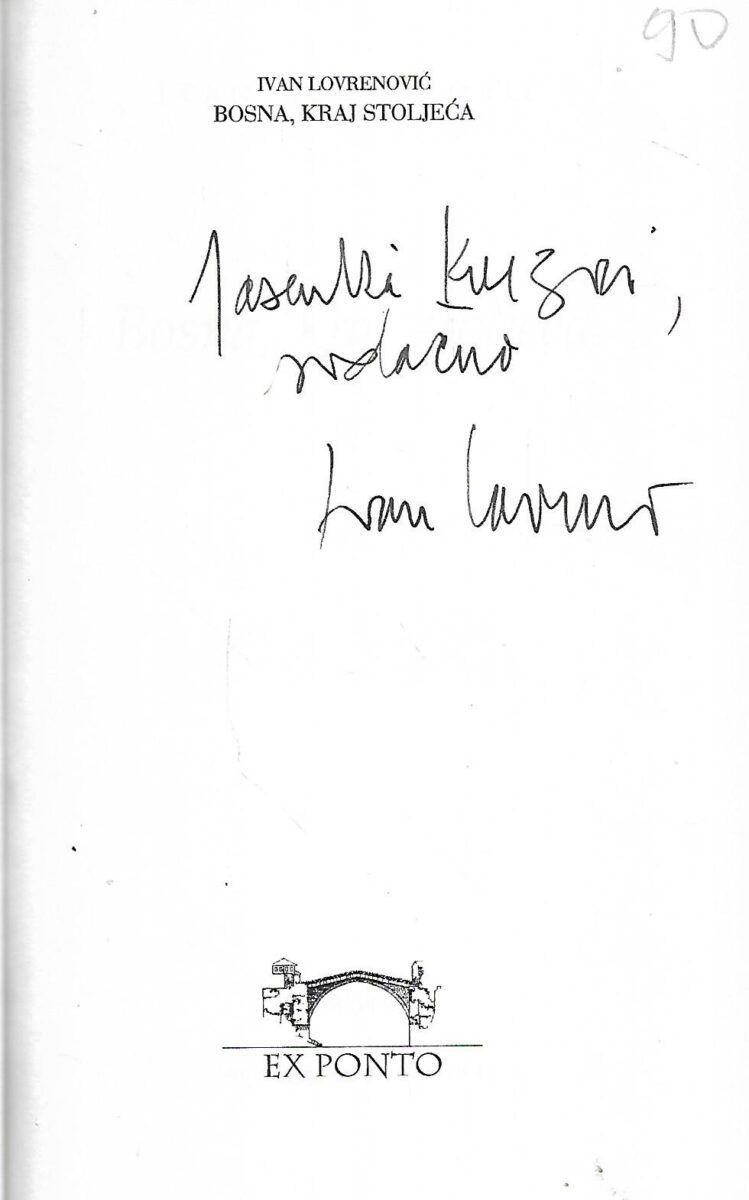 90
IVAN LOVRENOVIĆ
BOSNA, KRAJ STOLJEĆA
Jasenki
srdačno
Ivan Lovrenović
EX PONTO